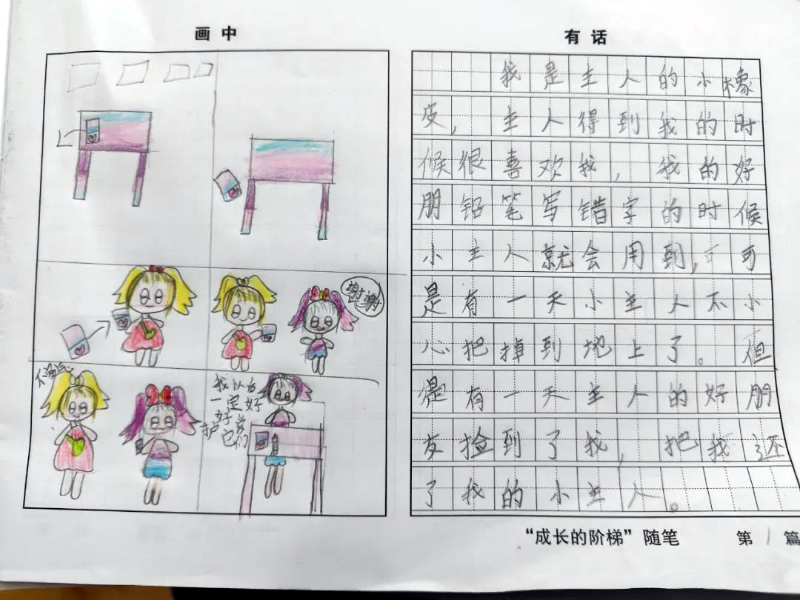 画中
有话
谢谢
不客气
我以后
一定好
好爱
护它们
我是主人的小橡
皮，主人得到我的时
候很喜欢我，我的好
朋铅笔写错字的时候
小主人就会用到，可
是有一天小主人不小
心把掉到地上了。但
是有一天主人的好朋
友捡到了我，把我还
了我的小主人。
“成长的阶梯”随笔 第1篇